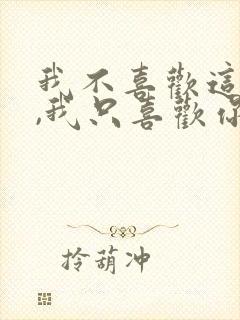 我不喜歡這
,我只喜歡你
拎葫冲